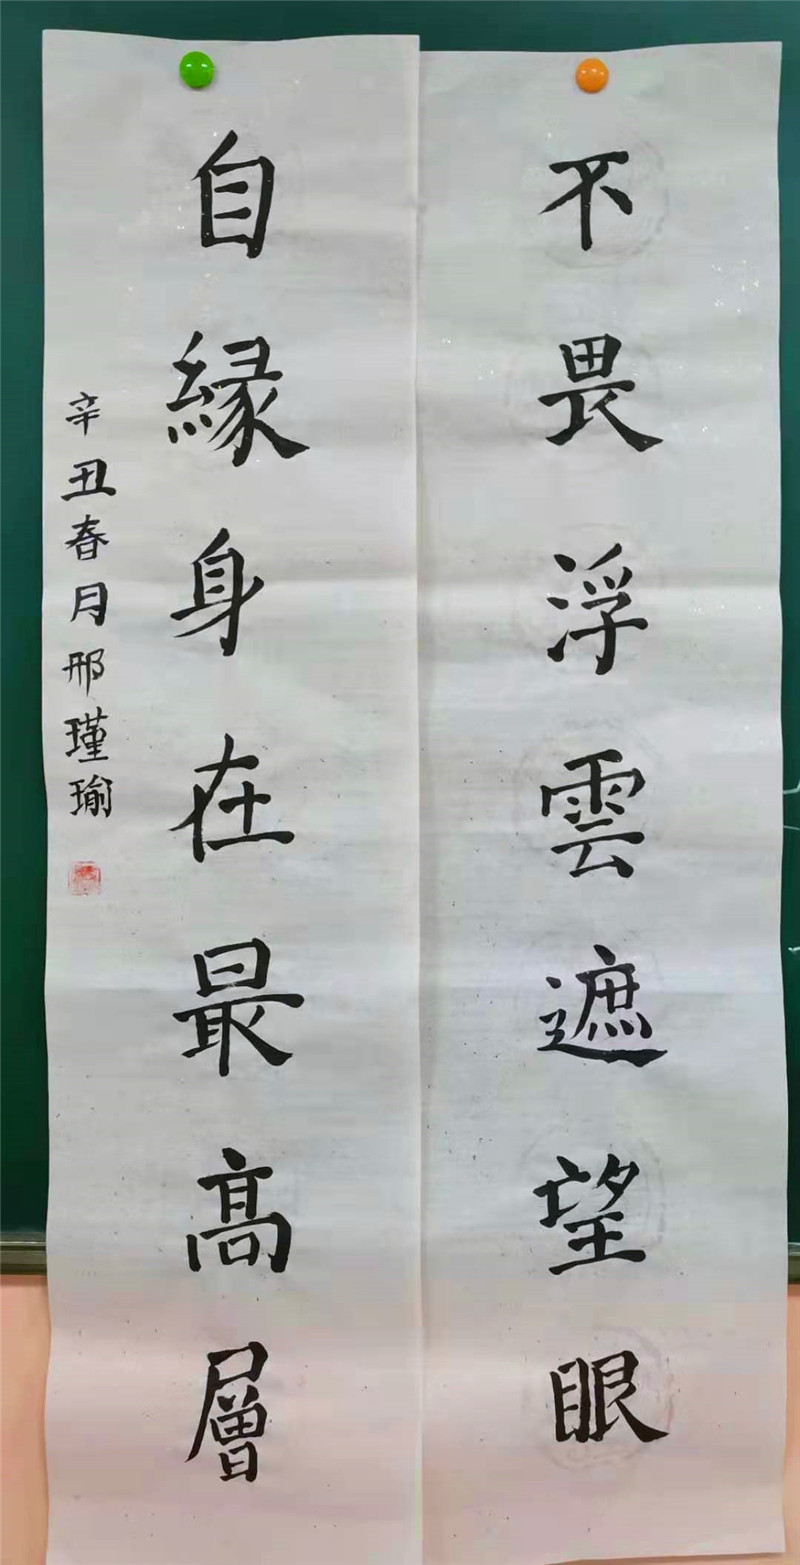 不畏浮雲遮望眼
自緣身在最高層
辛丑春月邢瑾瑜